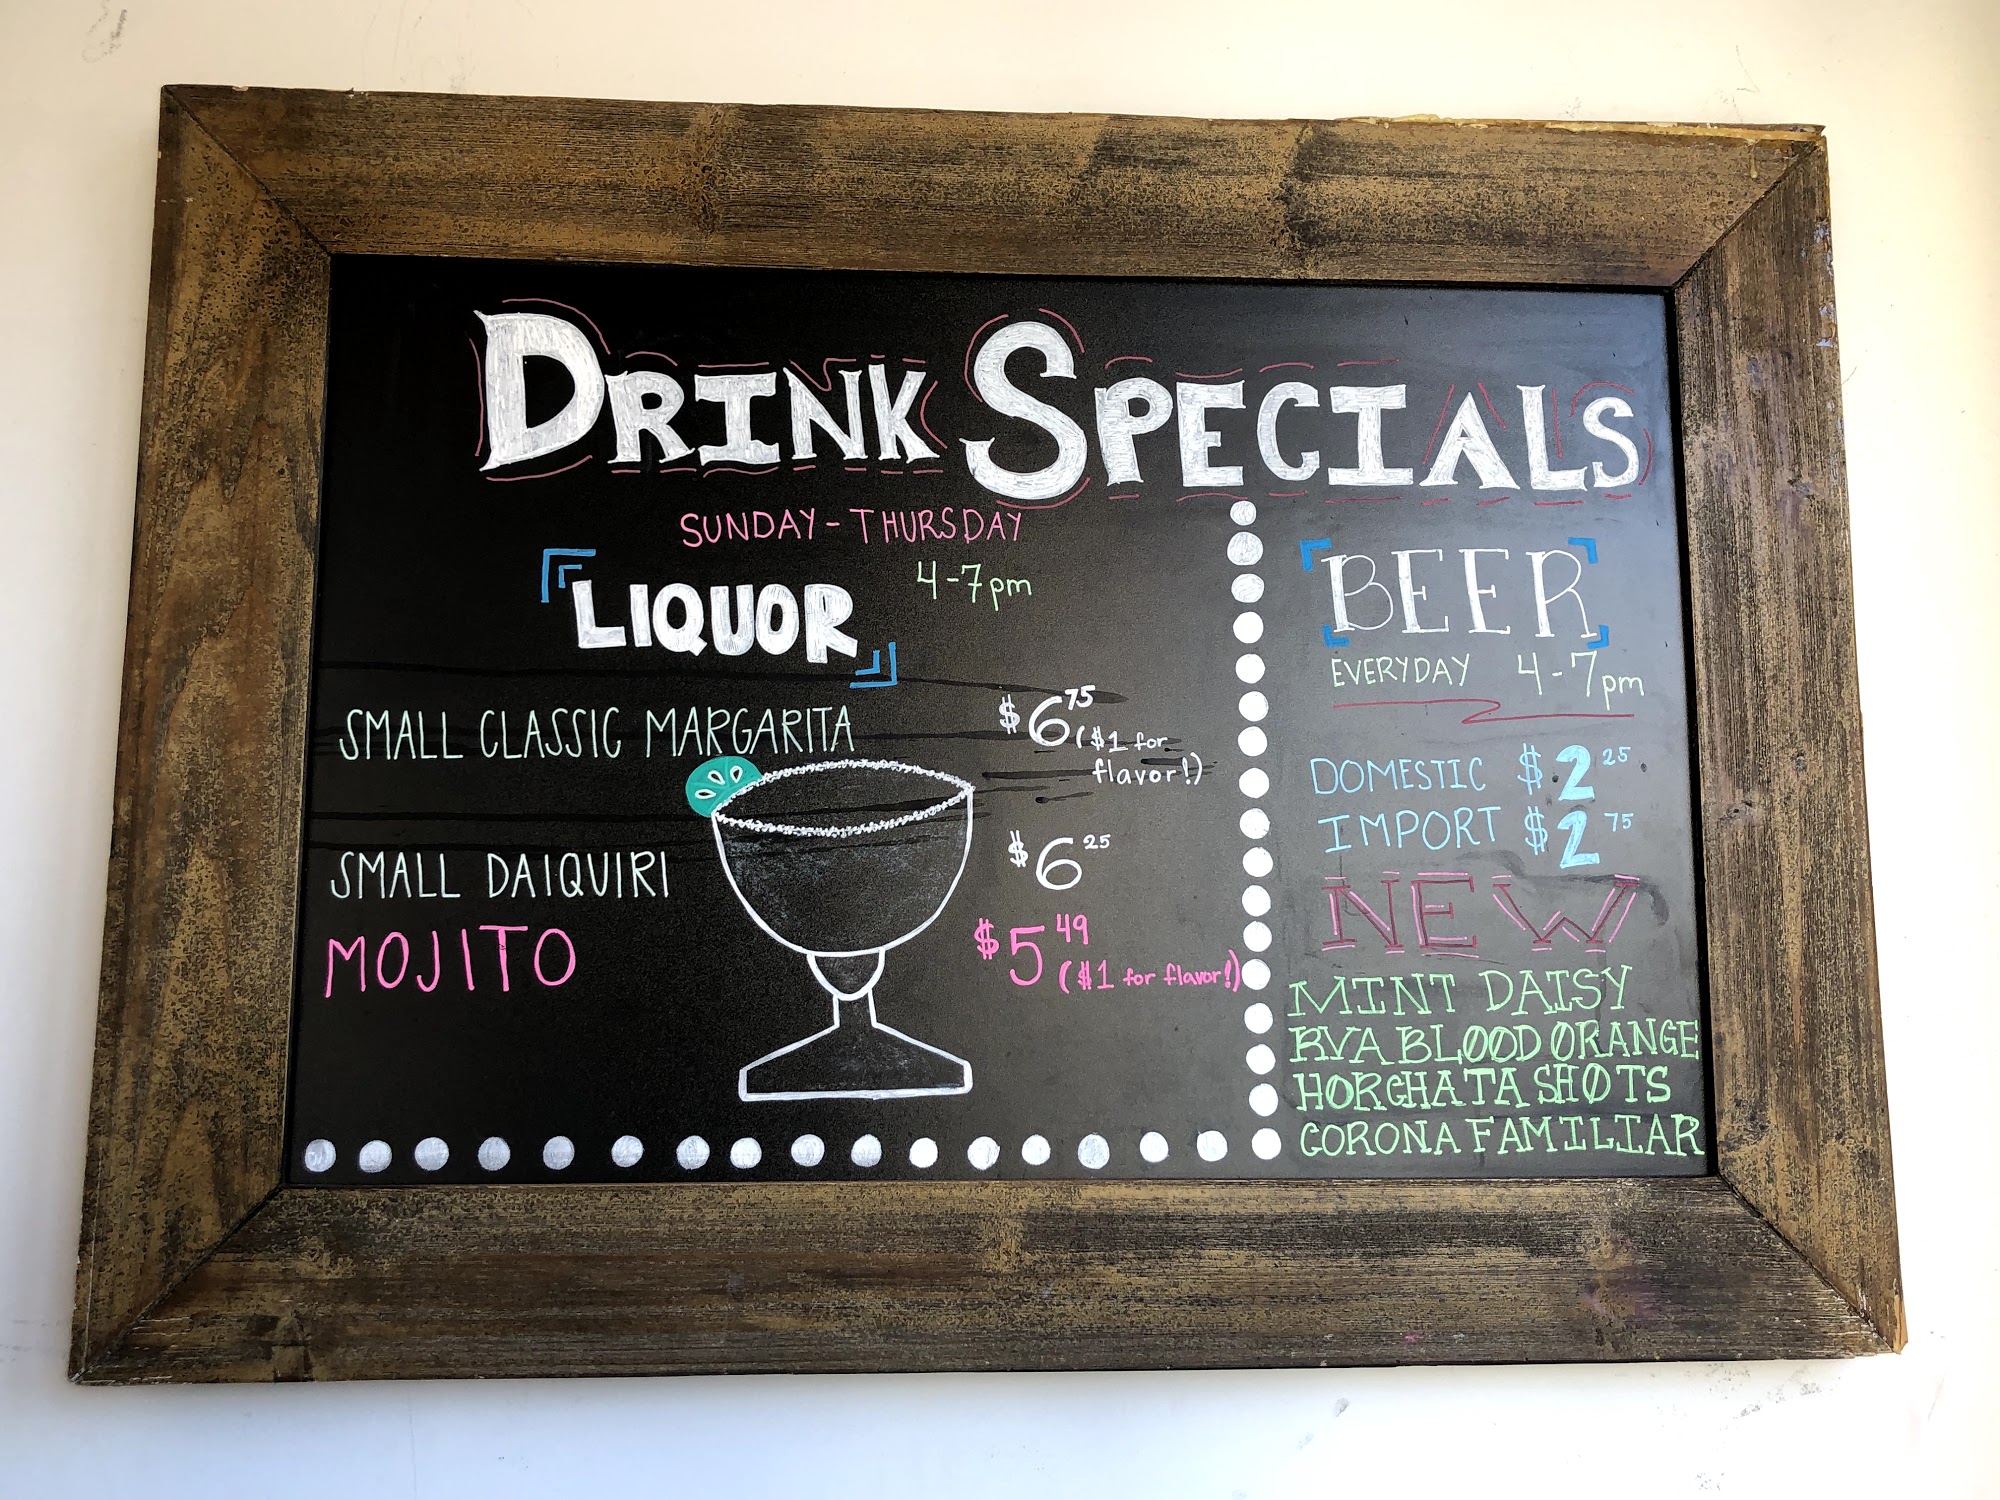 DRINK SPECIALS
SUNDAY-THURSDAY
LIQUOR 4-7pm
SMALL CLASSIC MARGARITA $6 75 ($1 for
flavor!)
SMALL DAIQUIRI $6 25
MOJITO $5 49 ($1 for flavor!)
BEER
EVERYDAY 4-7pm
DOMESTIC $2 25
IMPORT $2 75
NEW
MINT DAISY
RVA BLOOD ORANGE
HORCHATA SHOTS
CORONA FAMILIAR